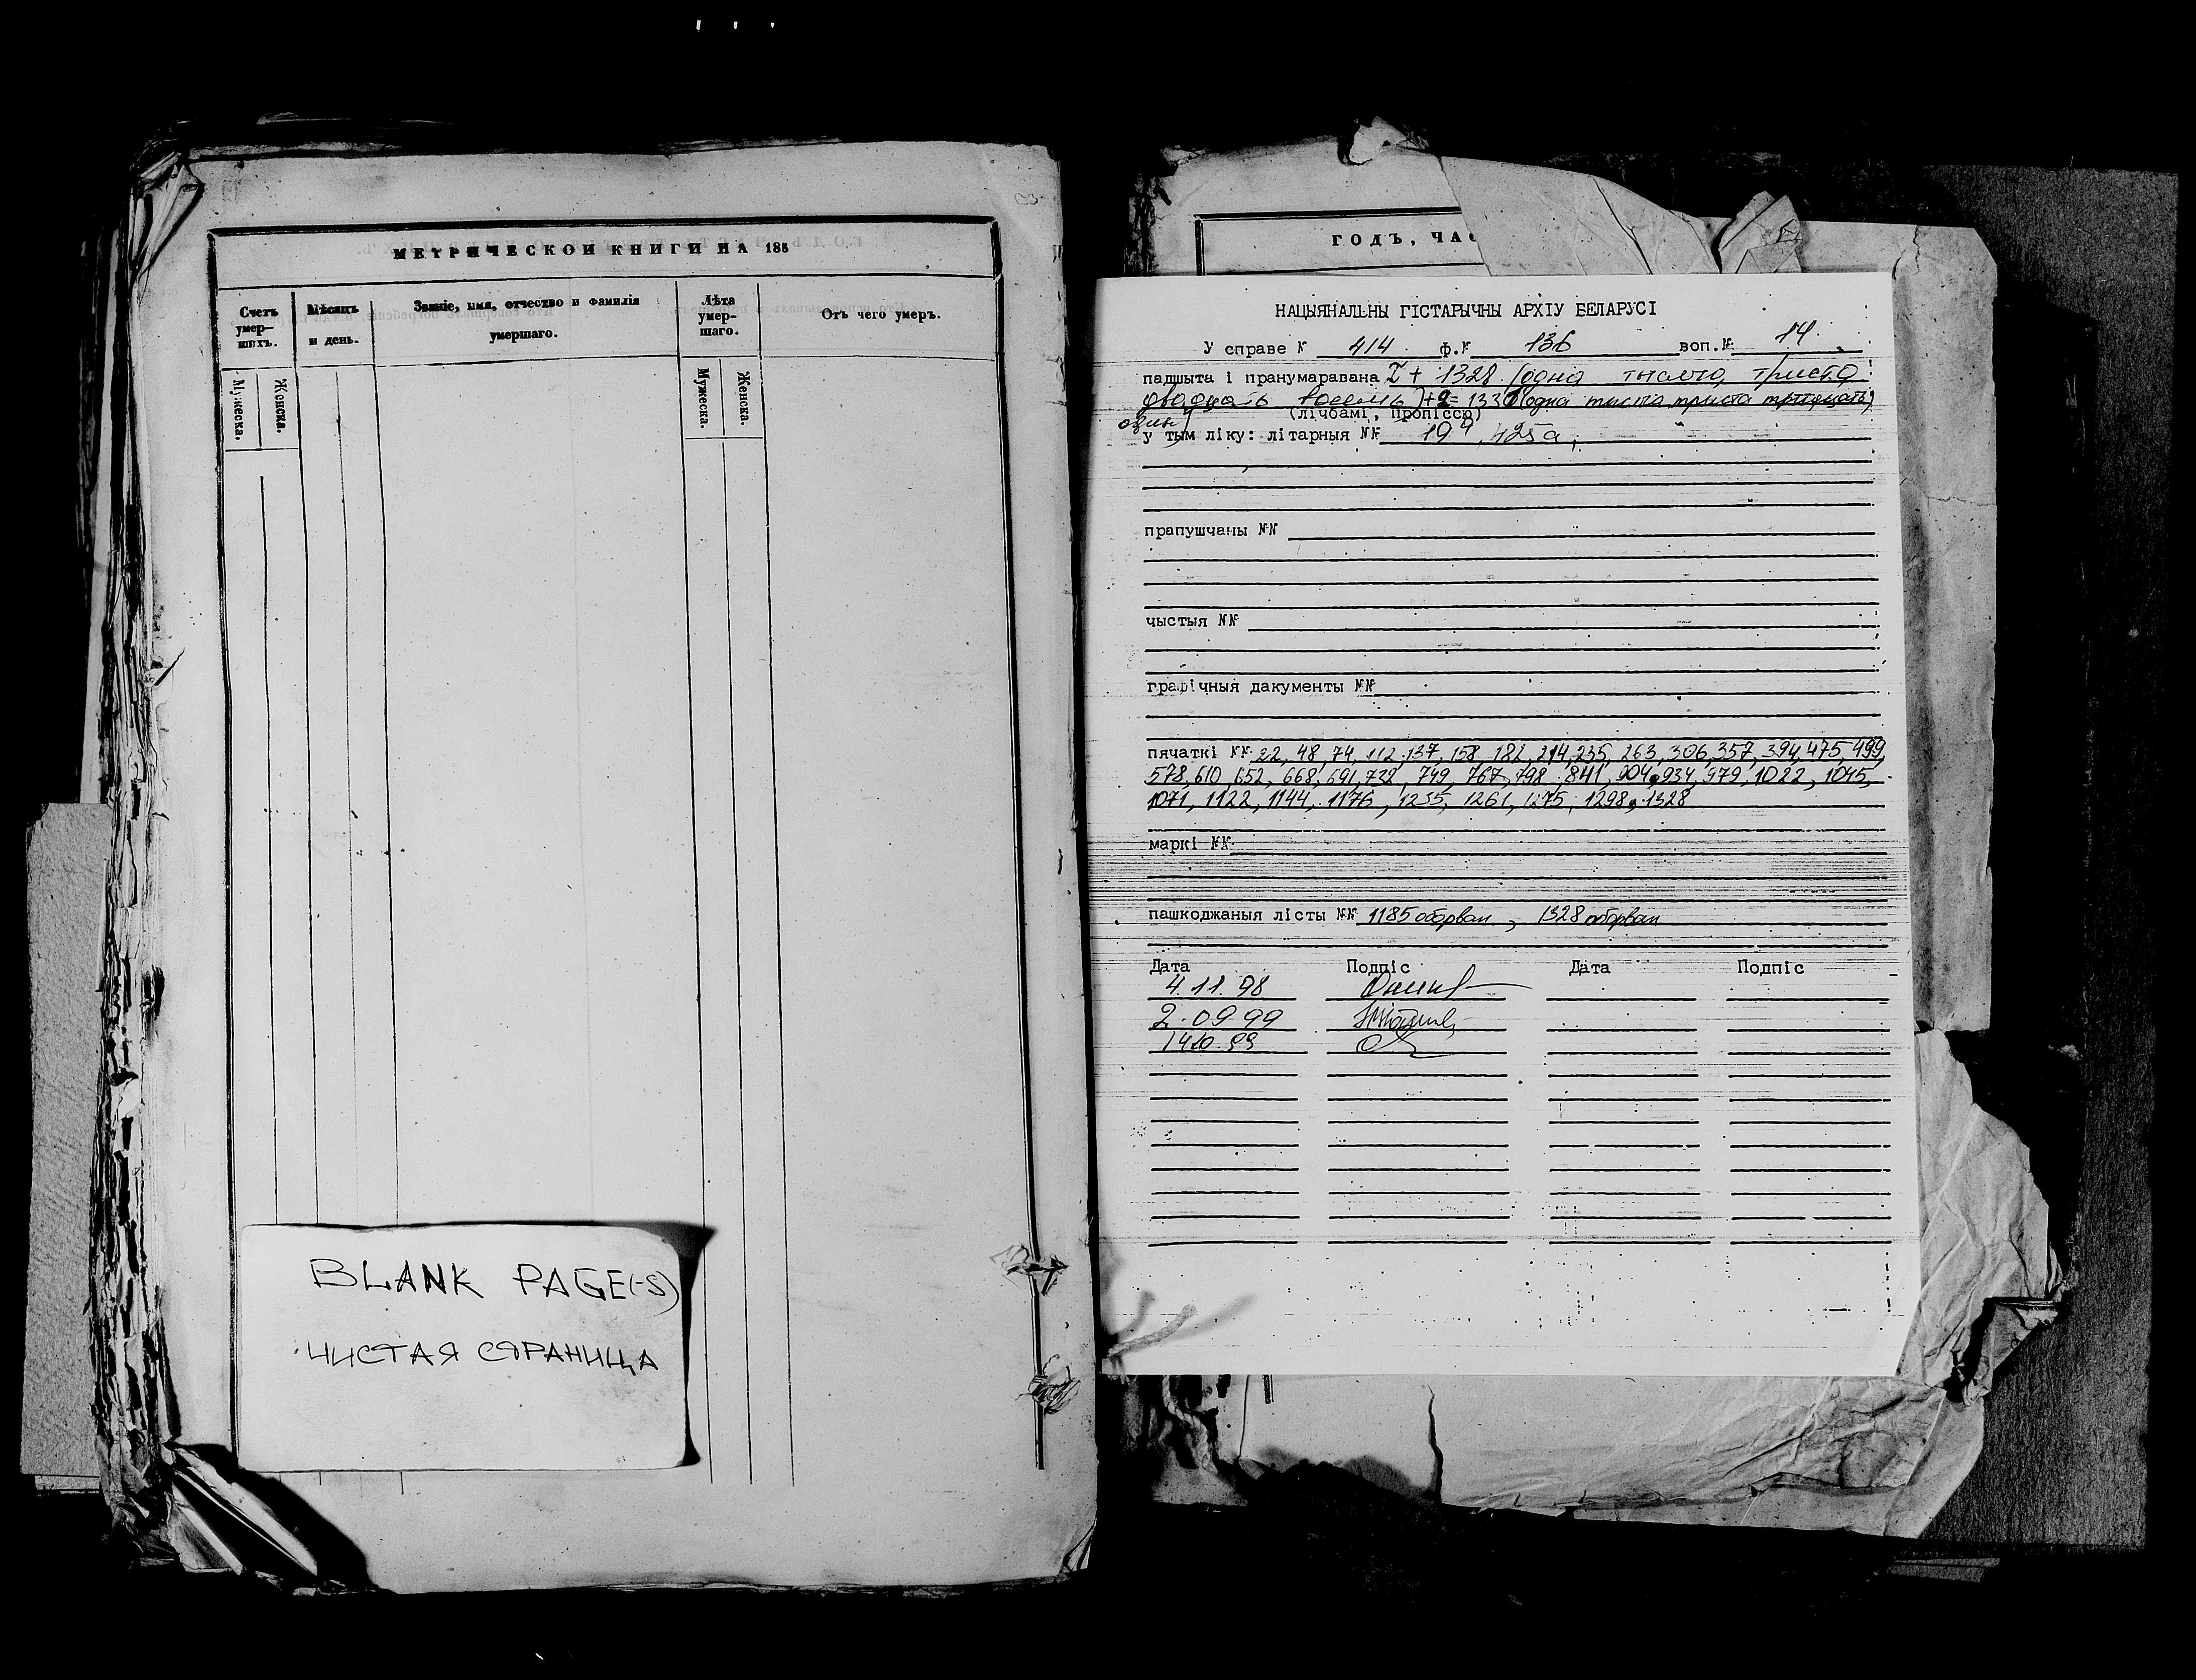 МЕТРИЧЕСКОЙ КНИГИ НА 185
Счетъ умер- шихъ.
Мѣсяцъ и день.
Званіе, имя, отчество и фамилія умершаго.
Лѣта умер- шаго.
Отъ чего умеръ.
Мужеска.
Женска.
Мужеска.
Женска.
BLANK PAGE(-S)
ЧИСТАЯ СТРАНИЦА
ГОДЪ, ЧАС
НАЦЫЯНАЛЬНЫ ГІСТАРЫЧНЫ АРХІУ БЕЛАРУСІ
У справе № 414 ф.№ 136 воп.№ 14
падшыта і пранумаравана I + 1328 (одна тысяча, триста
двадцать восемь) +2= 1331 (одна тысяча триста тридцать
один)
(лічбамі, пропіссю)
у тым ліку: літарныя №№ 19а, 425а;
прапушчаны №№
чыстыя №№
графічныя дакументы №№
пячаткі №№ 22, 48, 74, 112, 137, 158, 182, 214, 235, 263, 306, 357, 394, 475, 499,
578, 610, 652, 668, 691, 732, 749, 767, 798, 841, 904, 934, 979, 1022, 1045,
1071, 1122, 1144, 1176, 1235, 1261, 1275, 1298, 1328
маркі №№
пашкоджаныя лісты №№ 1185 оборван, 1328 оборван
Дата Подпіс Дата Подпіс
4.11.98
2.09.99
14.10.99